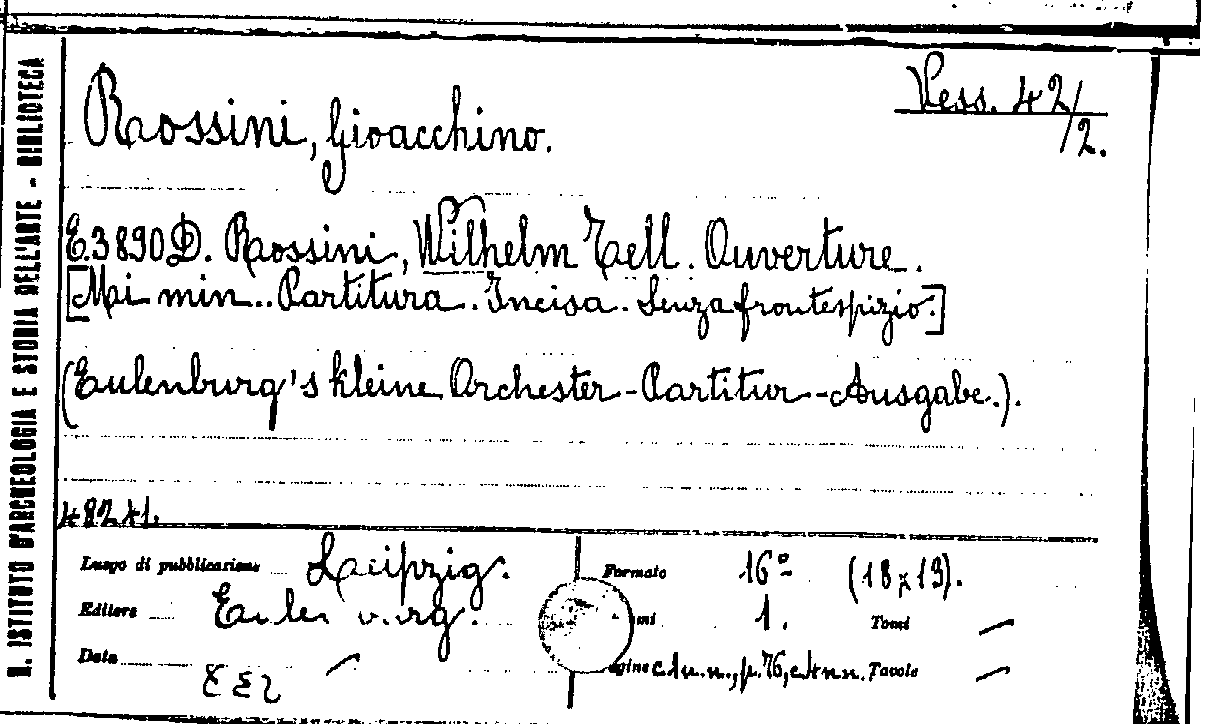 R. ISTITUTO D'ARCHEOLOGIA E STORIA DELL'ARTE - BIBLIOTECA
Vess. 42/2.
Rossini, Gioacchino.
E.3890D. Rossini, Wilhelm Tell. Ouverture.
[Mi min.. Partitura. Incisa. Senza frontespizio.]
(Eulenburg's kleine Orchester-Partitur-Ausgabe.).
48241.
Luogo di pubblicazione Leipzig. Formato 16º (18x13).
Editore 1. Tomi —
Data —
p. 76, Tavole —